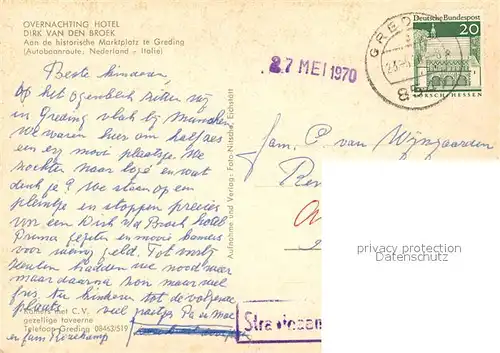 OVERNACHTING HOTEL
DIRK VAN DEN BROEK
Aan de historische Marktplatz te Greding
(Autobaanroute: Nederland - Italie)
Beste kinderen,
Op het ogenblik zitten wij
in Greding vlak bij München
We waren hier om half zes
een erg mooi plaatsje. We
zochten naar logé en wat
denk je? We staan op een
pleintje en stoppen precies
voor een Dirk v/d Broek hotel
Prima gegeten en mooie kamers
voor weinig geld. Tot
hadden we nood weer
maar daarna zon maar wel
fris. tu kinderen tot de volgende
plaats. veel groetjes Pa en Moe
en fam.
Kamers met C.V.
gezellige taveerne
Telefoon Greding 08463/519
Aufnahme und Verlag: Foto-Nitsche, Eichstätt
27 MEI 1970
GREDI
Deutsche Bundespost
20
LORSCH/HESSEN
fam. C. van Wijngaarden
privacy protection
watermark